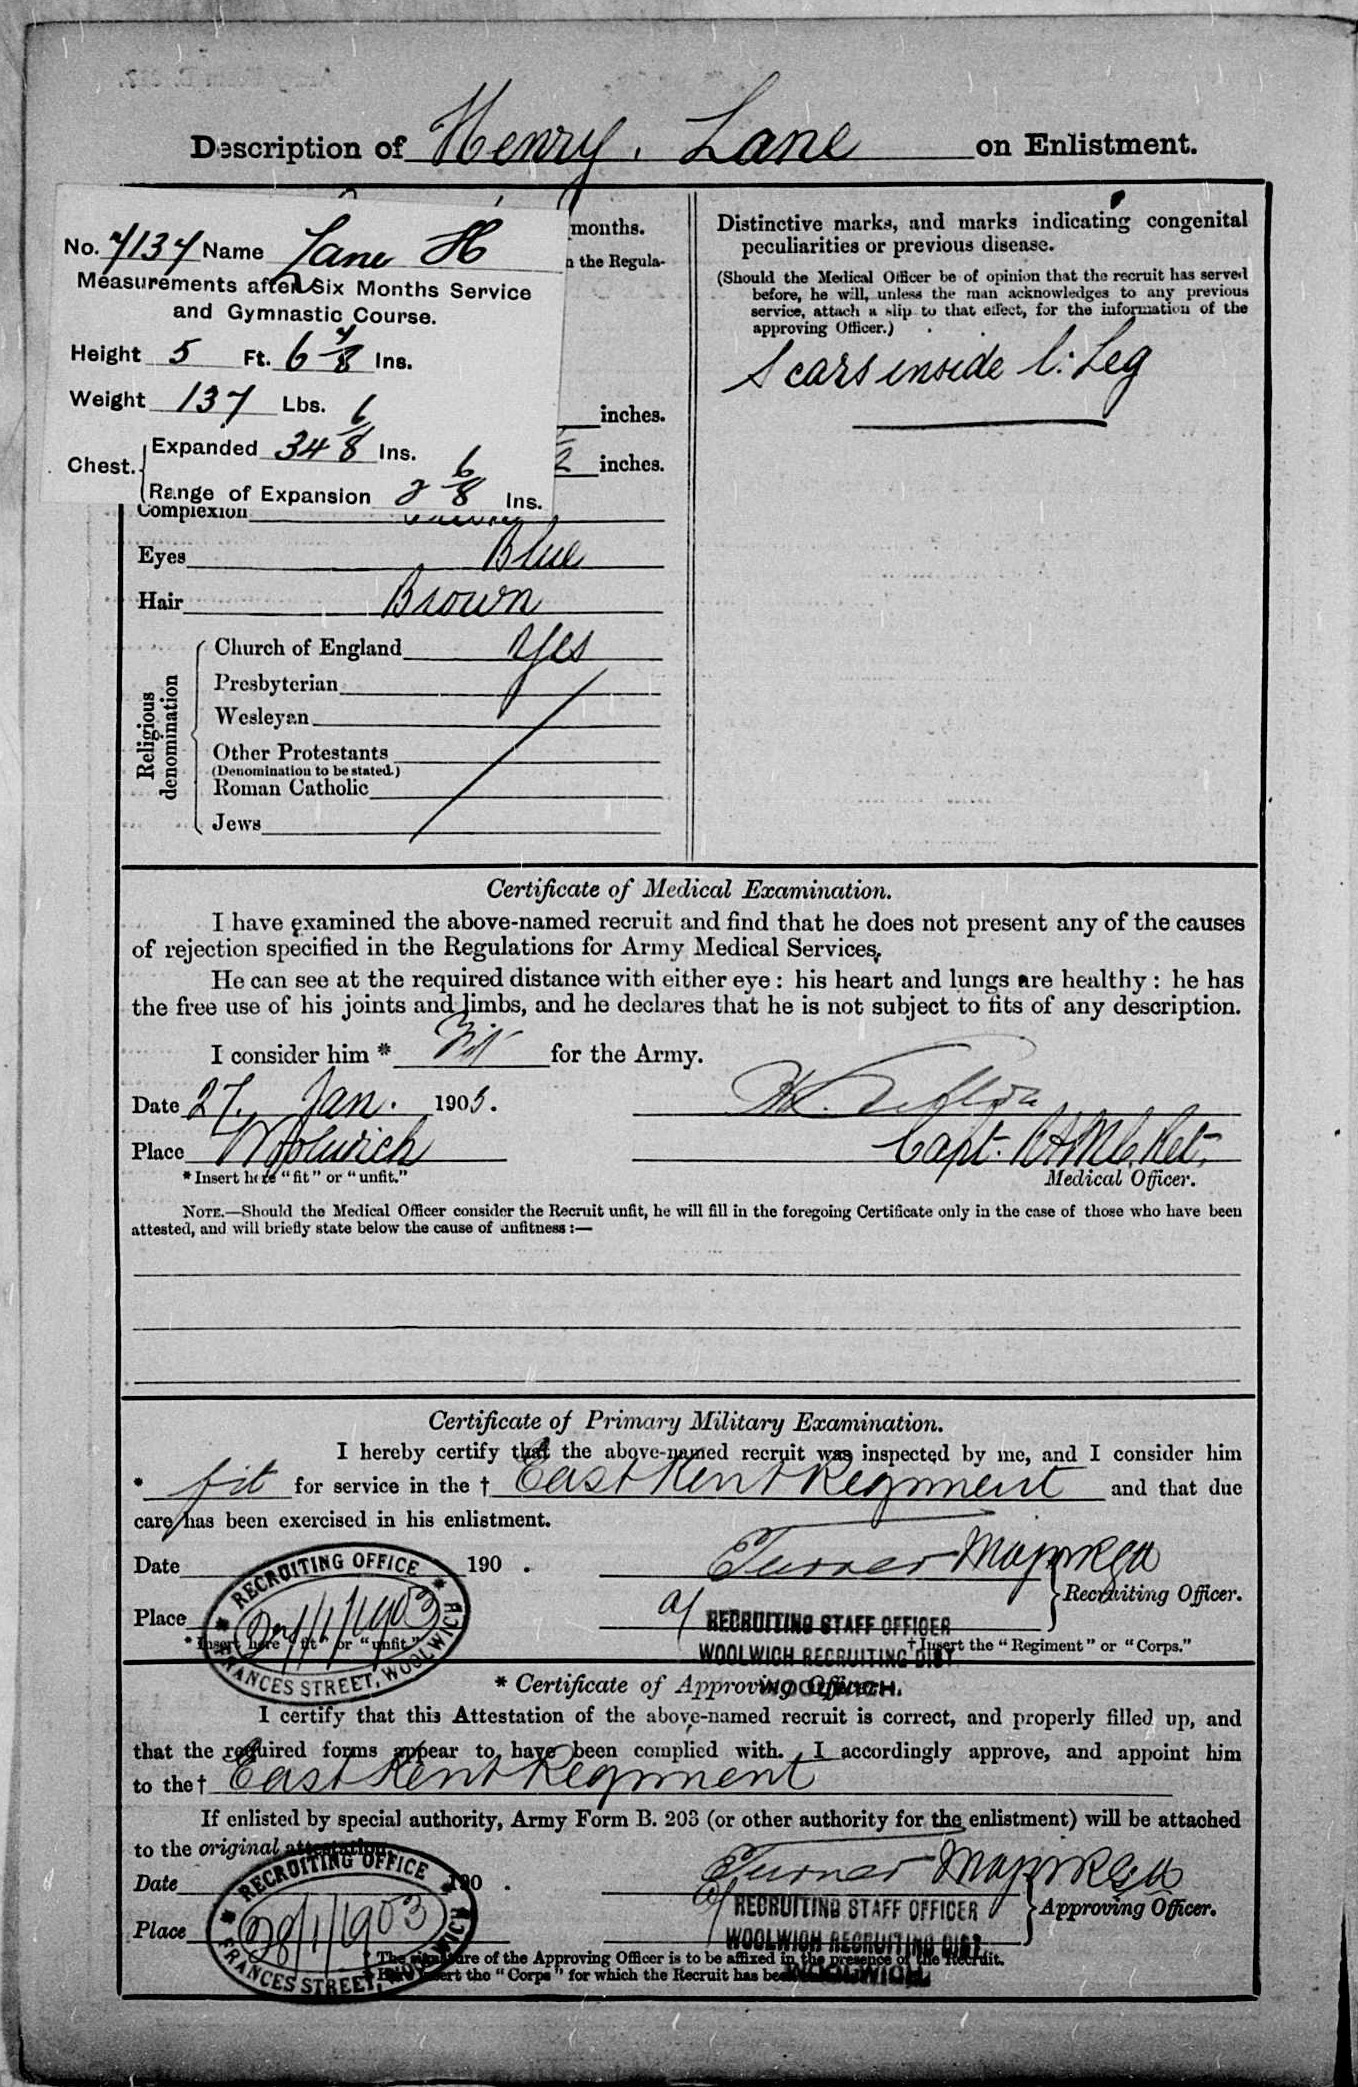 Description of Henry. Lane on Enlistment.
No. 7137 Name Lane H
Measurements after Six Months Service
and Gymnastic Course.
Height 5 Ft. 6 7/8 Ins.
Weight 137 Lbs.
Chest. Expanded 34 6/8 Ins.
Range of Expansion 2 6/8 Ins.
months.
the Regula-
inches.
inches.
Complexion
Eyes Blue
Hair Brown
Religious denomination
Church of England Yes
Presbyterian
Wesleyan
Other Protestants
(Denomination to be stated.)
Roman Catholic
Jews
Distinctive marks, and marks indicating congenital
peculiarities or previous disease.
(Should the Medical Officer be of opinion that the recruit has served
before, he will, unless the man acknowledges to any previous
service, attach a slip to that effect, for the information of the
approving Officer.)
Scars inside l. Leg
Certificate of Medical Examination.
I have examined the above-named recruit and find that he does not present any of the causes
of rejection specified in the Regulations for Army Medical Services.
He can see at the required distance with either eye: his heart and lungs are healthy: he has
the free use of his joints and limbs, and he declares that he is not subject to fits of any description.
I consider him * Fit for the Army.
Date 27. Jan. 1903.
Place Woolwich Capt. RAMC. Ret.
* Insert here "fit" or "unfit." Medical Officer.
NOTE.—Should the Medical Officer consider the Recruit unfit, he will fill in the foregoing Certificate only in the case of those who have been
attested, and will briefly state below the cause of unfitness:—
Certificate of Primary Military Examination.
I hereby certify that the above-named recruit was inspected by me, and I consider him
* fit for service in the † East Kent Regiment and that due
care has been exercised in his enlistment.
Date 190 . Turner Major RGA
Recruiting Officer.
Place
RECRUITING OFFICE
/1/1903
FRANCES STREET, WOOLWICH
RECRUITING STAFF OFFICER
WOOLWICH RECRUITING DIST
WOOLWICH.
* Insert here "fit" or "unfit." † Insert the "Regiment" or "Corps."
* Certificate of Approving Officer.
I certify that this Attestation of the above-named recruit is correct, and properly filled up, and
that the required forms appear to have been complied with. I accordingly approve, and appoint him
to the † East Kent Regiment
If enlisted by special authority, Army Form B. 203 (or other authority for the enlistment) will be attached
to the original attestation.
Date 190 . Turner Major RGA
Approving Officer.
Place
RECRUITING OFFICE
28/1/1903
FRANCES STREET, WOOLWICH
RECRUITING STAFF OFFICER
WOOLWICH RECRUITING DIST
WOOLWICH
* The signature of the Approving Officer is to be affixed in the presence of the Recruit.
insert the "Corps" for which the Recruit has been